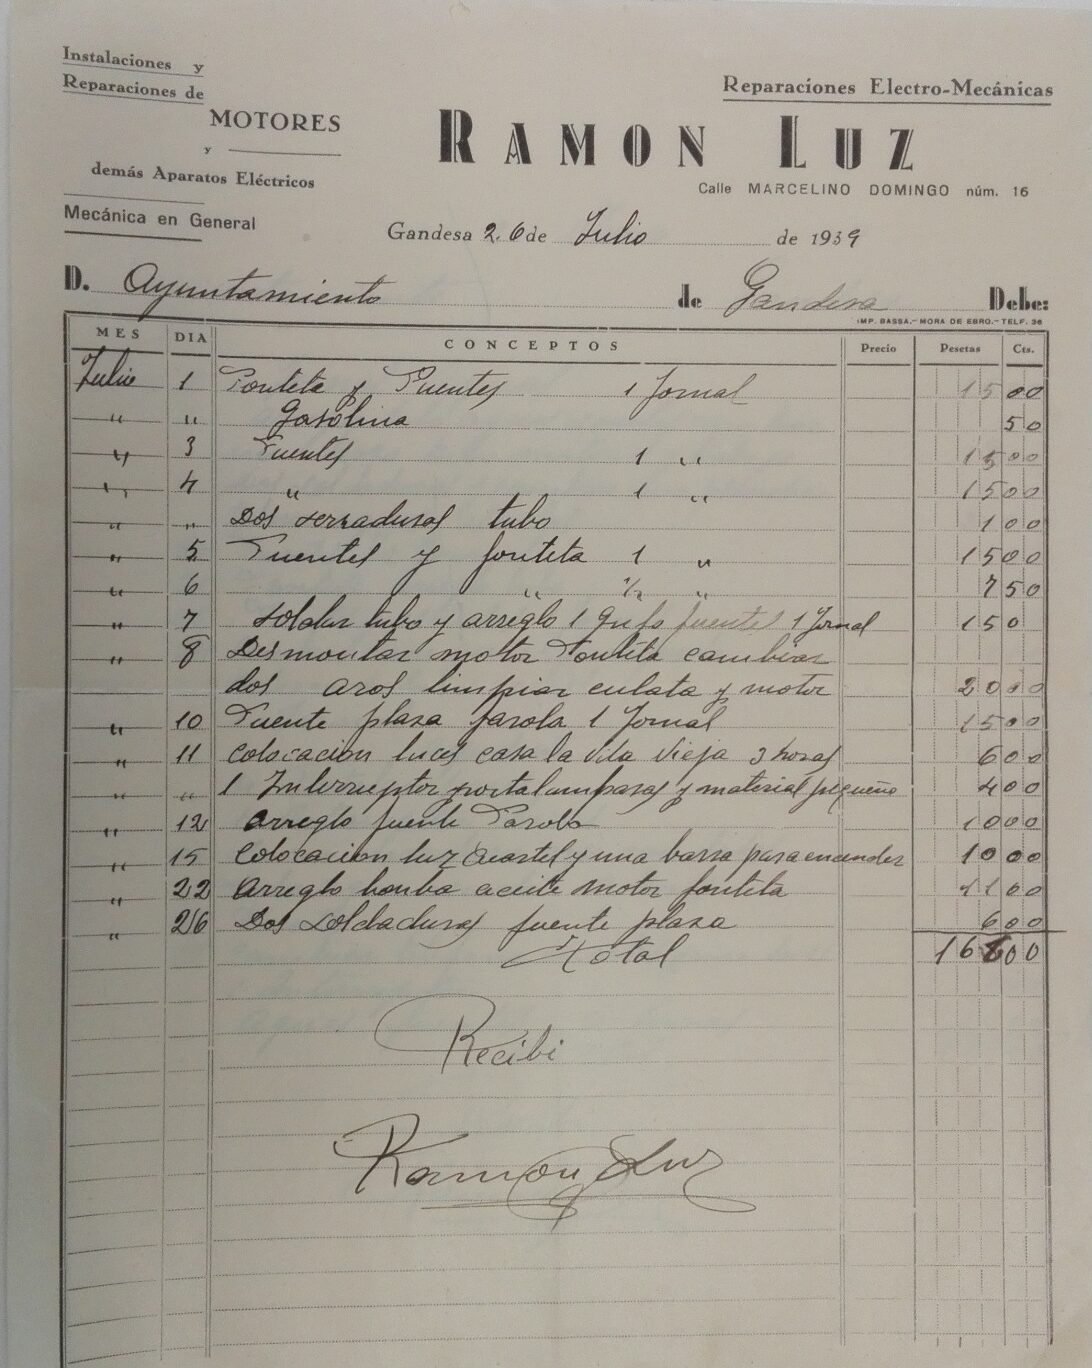 Instalaciones y
Reparaciones de
MOTORES
y
demás Aparatos Eléctricos
Mecánica en General
Reparaciones Electro-Mecánicas
RAMON LUZ
Calle MARCELINO DOMINGO núm. 16
Gandesa 26 de Julio de 1939
D. Ayuntamiento de Gandesa Debe:
IMP. BASSA.-MORA DE EBRO.-TELF. 36
MES DIA CONCEPTOS Precio Pesetas Cts.
Julio 1 Fonteta y Fuentes 1 Jornal 15 00
" " Gasolina 50
" 3 Fuentes 1 " 15 00
" 4 " 1 " 15 00
" " Dos serraduras tubo 1 00
" 5 Fuentes y fonteta 1 " 15 00
" 6 " 1/2 " 7 50
" 7 soldar tubo y arreglo 1 grifo fuentes 1 Jornal 15 0
" 8 Desmontar motor Fonteta cambiar
dos aros limpiar culata y motor 20 00
" 10 Fuente plaza farola 1 Jornal 15 00
" 11 colocacion luces casa la Vila Vieja 3 horas 6 00
" " 1 Interruptor portalamparas y material pequeño 4 00
" 12 arreglo fuente Farola 10 00
" 15 colocacion luz Cuartel y una barra para encender 10 00
" 22 arreglo bomba aceite motor fonteta 11 00
" 26 Dos soldaduras fuente plaza 6 00
Total 166 00
Recibi
Ramon Luz